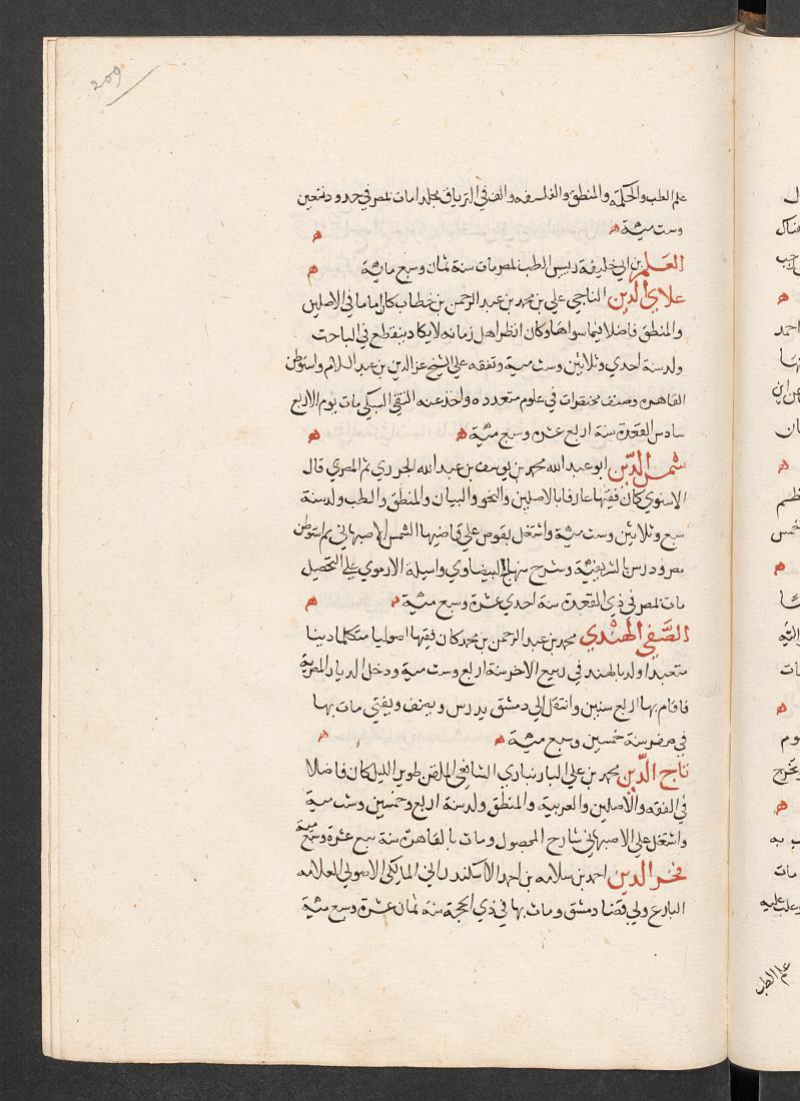 209
علم الطب والحكمة والمنطق والفلسفه والف في الترياق مجلدا مات بمصر في حدود تسعين
وست مئة ه ه
العلم بن ابي خليفة رييس الطب بمصر مات سنة ثمان وسبع ماية ه
علاي الدين الباجي علي بن محمد بن عبد الرحمن بن خطاب كان اماما في الاصلين
والمنطق فاضلا فيما سواها وكان انظر اهل زمانه لايكاد ينقطع في المباحث
ولد سنة احدي وثلاثين وست مية وتفقه علي الشيخ عز الدين بن عبد السلام واستوطن
القاهره وصنف مختصرات في علوم متعدده واخذ عنه التقي السبكي مات يوم الاربع
سادس القعدة سنة اربع عشره وسبع مئة ه ه
شمس الدين ابو عبد الله محمد بن يوسف بن عبد الله الجزري ثم المصري قال
الاسنوي كان فقيها عارفا بالاصلين والنحو والبيان والمنطق والطب ولد سنة
سبع وثلاثين وست مئة واشتغل بقوص علي قاضيها الشمس الاصبهاني ثم استوطن
مصر ودرس بالشريفية وشرح منهاج البيضاوي واسيلة الارموي علي التحصيل
مات بمصر في ذي القعدة سنة احدي عشرة وسبع مئية ه ه
الصفي الهندي محمد بن عبد الرحمن بن محمد كان فقيها اصوليا متكلما دينا
متعبدا ولد بالهند في ربيع الاخر سنة اربع وست مية ودخل الديار المصرية
فاقام بها اربع سنين وانتقل الي دمشق يدرس ويصنف ويفتي مات بها
في صفر سنة خمسين وسبع مئة ه ه
تاج الدين محمد بن علي البارنباري الشافعي الملقب طوير الليل كان فاضلا
في الفقه والاصلين والعربية والمنطق ولد سنة اربع وخمسين وست مية
واشتغل علي الاصبهاني شارح المحصول ومات بالقاهرة سنة سبع عشرة وسبع مية
فخر الدين احمد بن سلامه بن احمد الاسكندراني المالكي الاصولي العلامه
البارع ولي قضا دمشق ومات بها في ذي الحجة سنة ثمان عشرة وسبع مئة
علم الطب